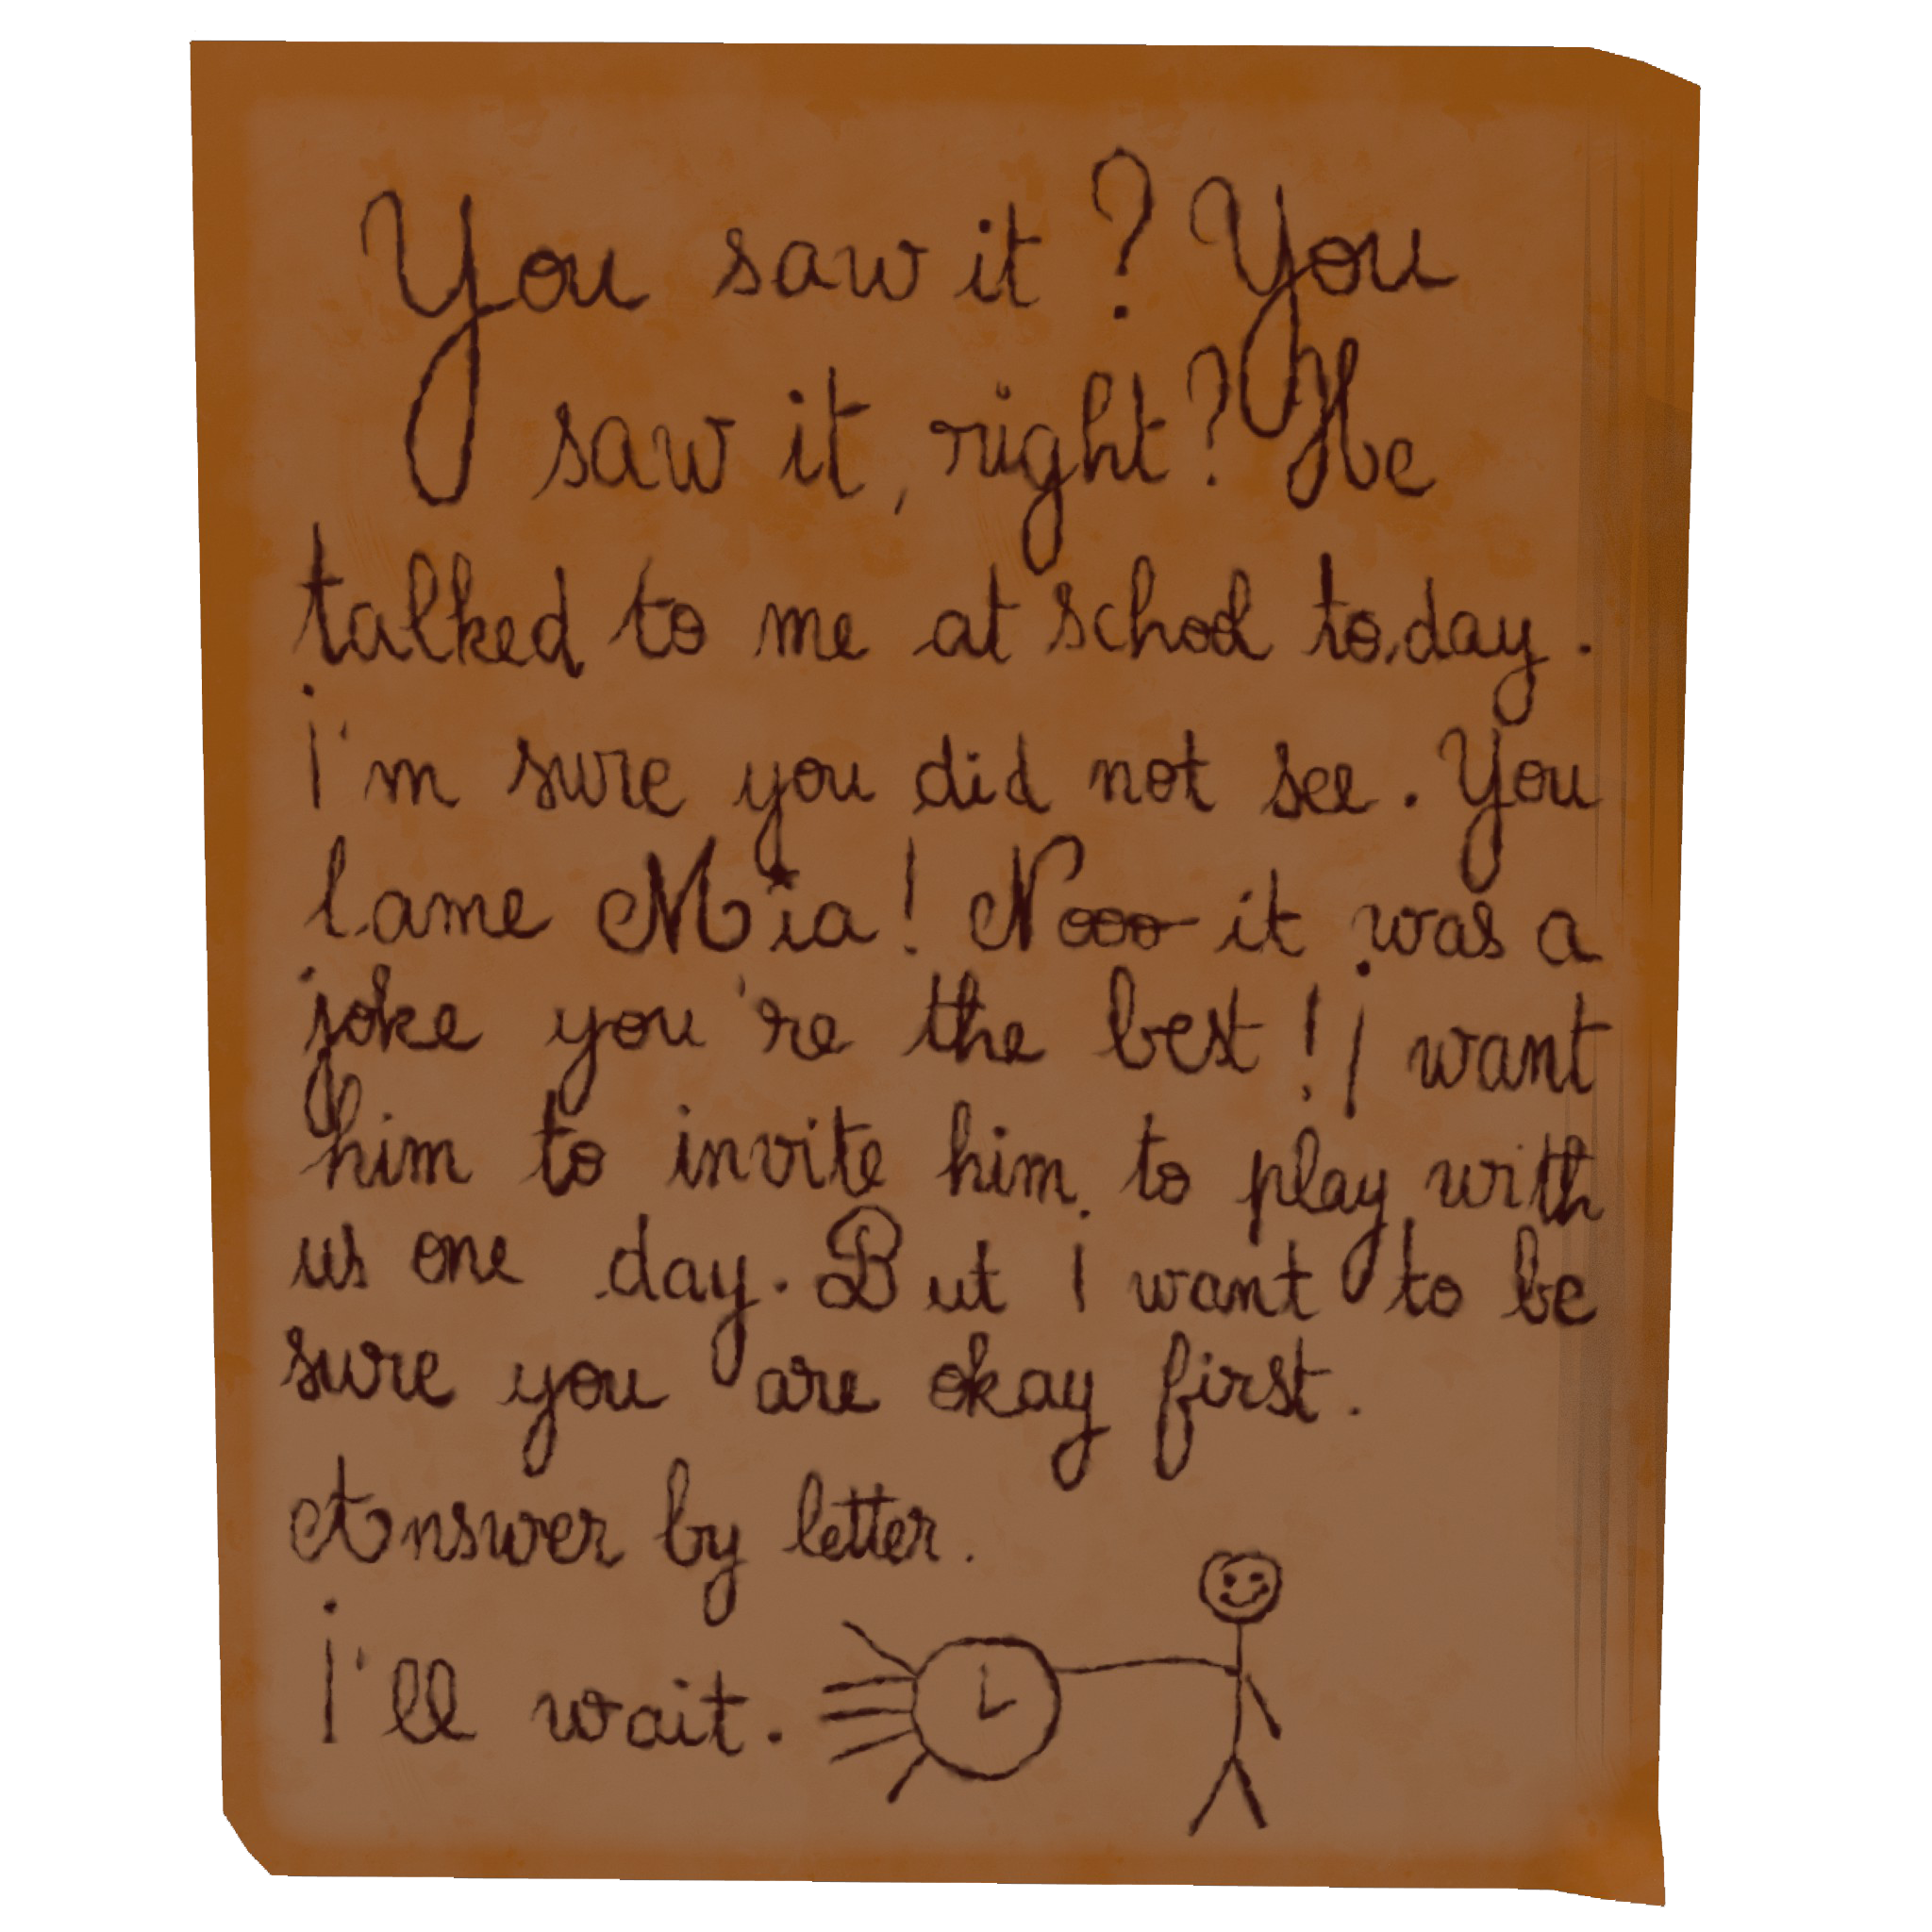 You saw it? You
saw it, right? He
talked to me at school today.
I'm sure you did not see. You
lame Mia! Nooo it was a
joke you're the best! I want
him to invite him to play with
us one day. But I want to be
sure you are okay first.
Answer by letter.
I'll wait.